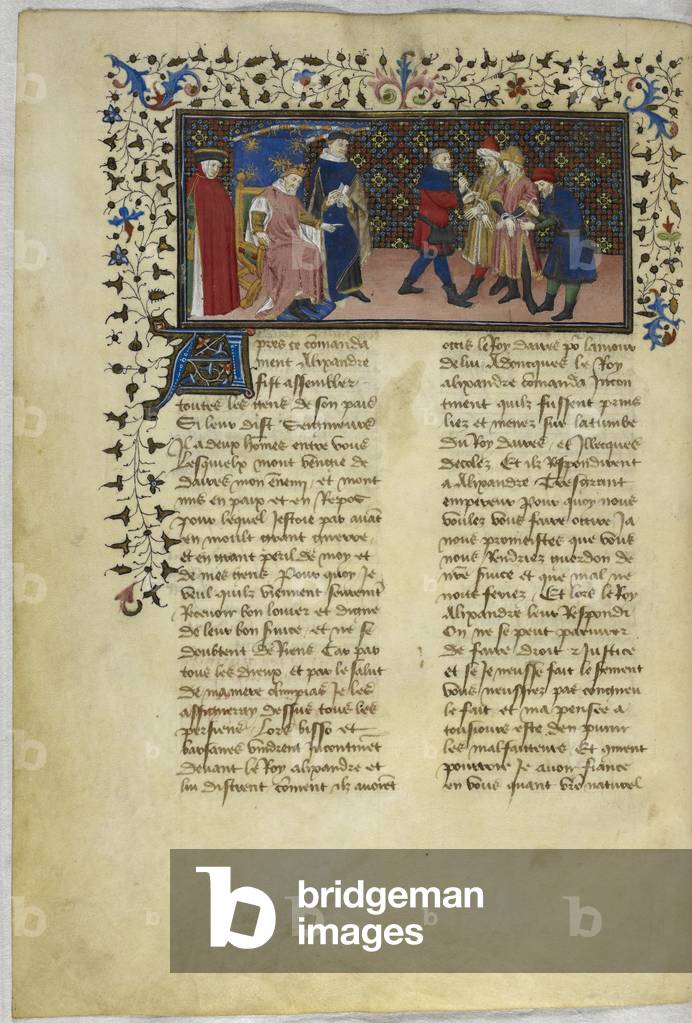 Apres ce comanda
ment Alixandre
fist assembler
toutes les gens de son pais
Si leur dist Seigneurs
Il a deux homes entre vous
lesquelx mont vengie de
daires mon enemi et mont
mis en paix et en Repos
pour lequel Jestoie par avant
en moult grant guerre
et en grant peril de moy et
de mes gens Pour quoy Je
veul quilz viennent seurement
Recevoir bon louier et digne
de leur bon service et ne se
doubtent de Riens Car par
tous les dieux et par le salut
de ma mere olimpias Je les
assigneray dessus tous les
persiens Lors bisso et
barsanes vindrent Incontinet
devant le Roy alixandre et
lui distrent coment ilz avoiet
occis le Roy daires po lamour
de lui Adoncques le Roy
alixandre comanda Incon
tinent quilz fussent prins
liez et menez sur la tumbe
du Roy daires et Illecques
decolez Et ilz Respondirent
a Alixandre Tres grant
empereur Pour quoy nous
voulez vous faire occire Ja
nous promeistes que vous
nous Rendriez guerdon de
nre service et que mal ne
nous feriez Et lors le Roy
Alixandre leur Respondi
On ne se peut
de faire droit & Justice
et se Je neusse fait le serment
vous neussiez pas congneu
le fait et ma pensee a
tousiours este den punir
les malfaiteurs Et coment
pourroie Je avoir fiance
en vous quant vre naturel
b
bridgeman
images